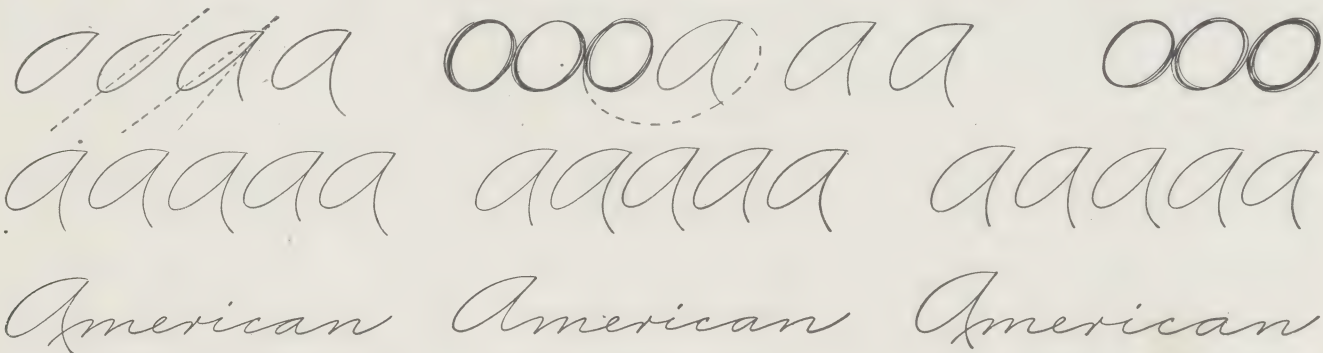 O O A A OOOA A A OOO
AAAAA AAAAA AAAAA
American American American